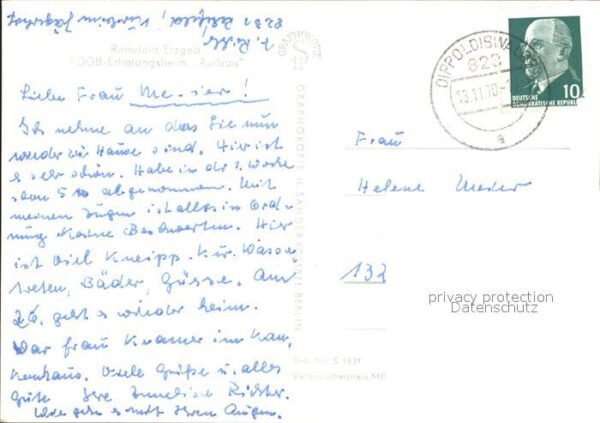 Rehefeld Erzgeb
FDGB-Erholungsheim "Aufbau"
Liebe Frau
Ich nehme an das Sie nun
wieder zu Hause sind. Hier ist
es sehr schön. Habe in der 1. Woche
schon 5 abgenommen. Mit
meinen Augen ist alles in Ord-
nung Keine Beschwerden. Hier
ist viel Kneipp. Kur. Wasser
treten, Bäder, Güsse. Am
26. geht es wieder heim.
War Frau Kramer im Kran-
kenhaus. Viele Grüße u. alles
Gute Ihre Richter.
Wie geht es mit Ihren Augen.
GRAPHOKOPIE
GRAPHOKOPIE H. SANDER KG 1071 BERLIN
DIPPOLDISWALDE
823
13.11.70
a
DEUTSCHE
DEMOKRATISCHE REPUBLIK
10
Frau
Helene
132
privacy protection
Datenschutz
Verbraucherpreis MC